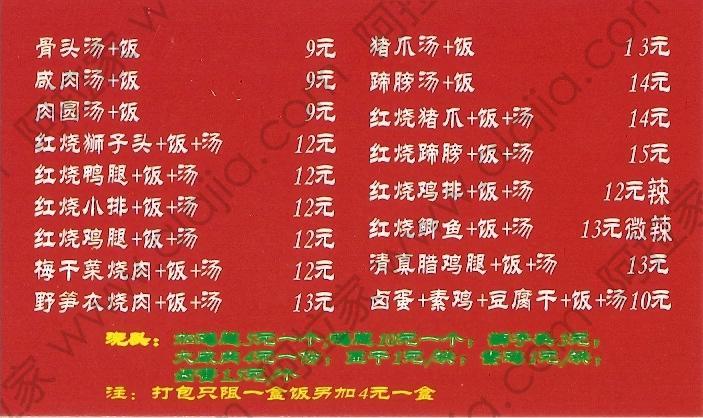 骨头汤+饭 9元
咸肉汤+饭 9元
肉圆汤+饭 9元
红烧狮子头+饭+汤 12元
红烧鸭腿+饭+汤 12元
红烧小排+饭+汤 12元
红烧鸡腿+饭+汤 12元
梅干菜烧肉+饭+汤 12元
野笋衣烧肉+饭+汤 13元
猪爪汤+饭 13元
蹄膀汤+饭 14元
红烧猪爪+饭+汤 14元
红烧蹄膀+饭+汤 15元
红烧鸡排+饭+汤 12元辣
红烧鲫鱼+饭+汤 13元微辣
清真腊鸡腿+饭+汤 13元
卤蛋+素鸡+豆腐干+饭+汤10元
浇头： 5元一个, 10元一个；
大咸肉4元一份； 1元/块； 1元/块；
1.5元/个
注：打包只限一盒饭另加4元一盒